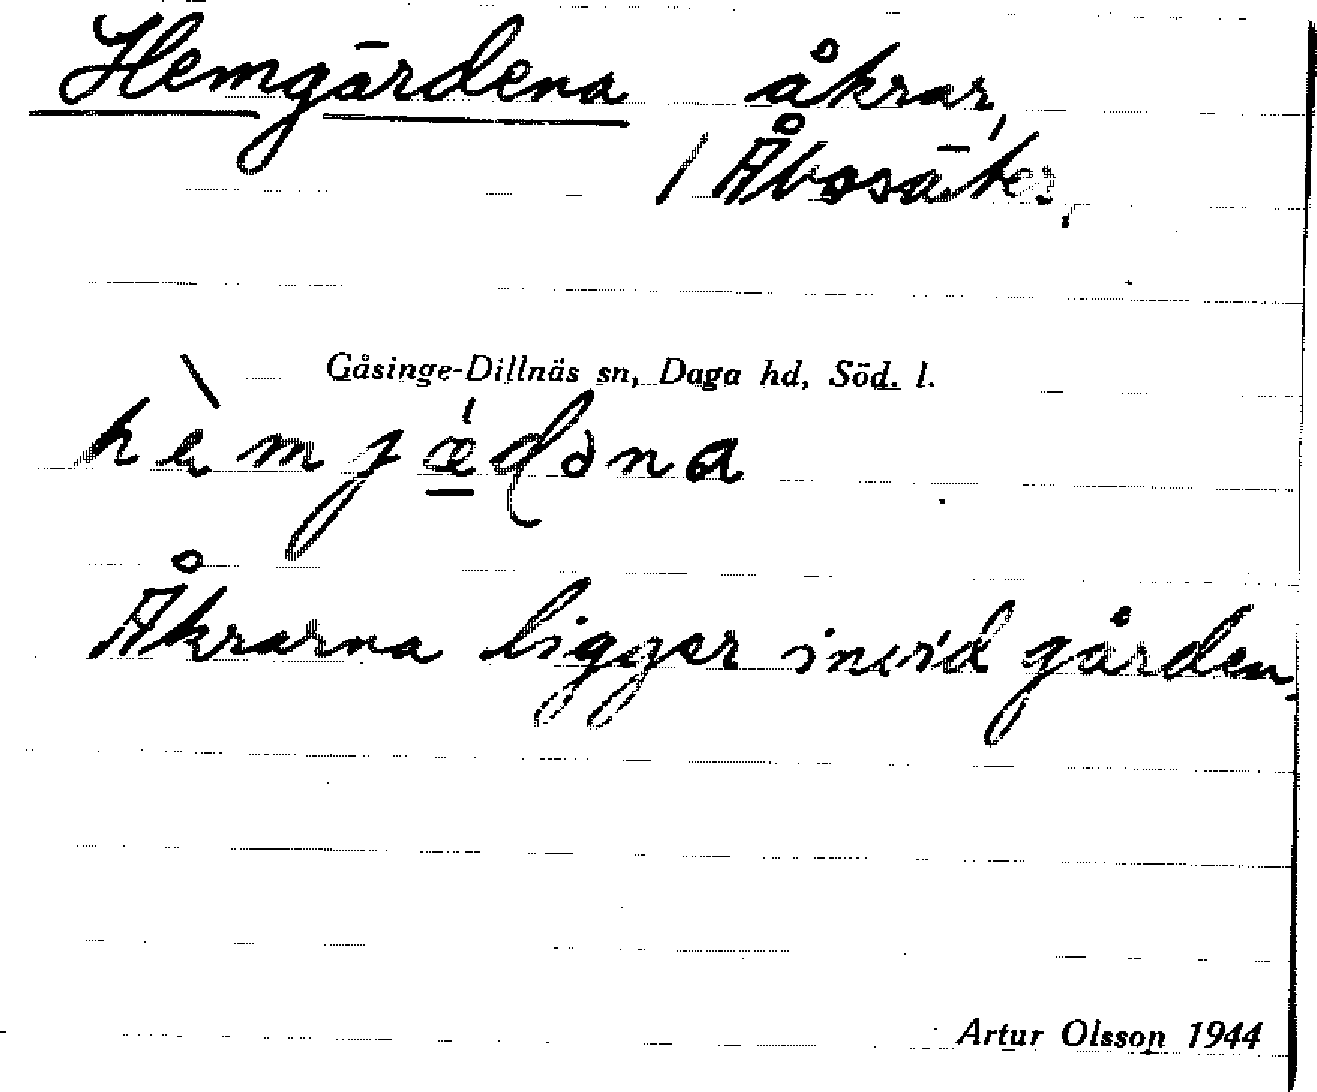 Hemgärdena åkrar,
/ Åbosäter,
Gåsinge-Dillnäs sn, Daga hd, Söd. l.
hèmjǽdəna
Åkrarna ligger invid gården.
Artur Olsson 1944